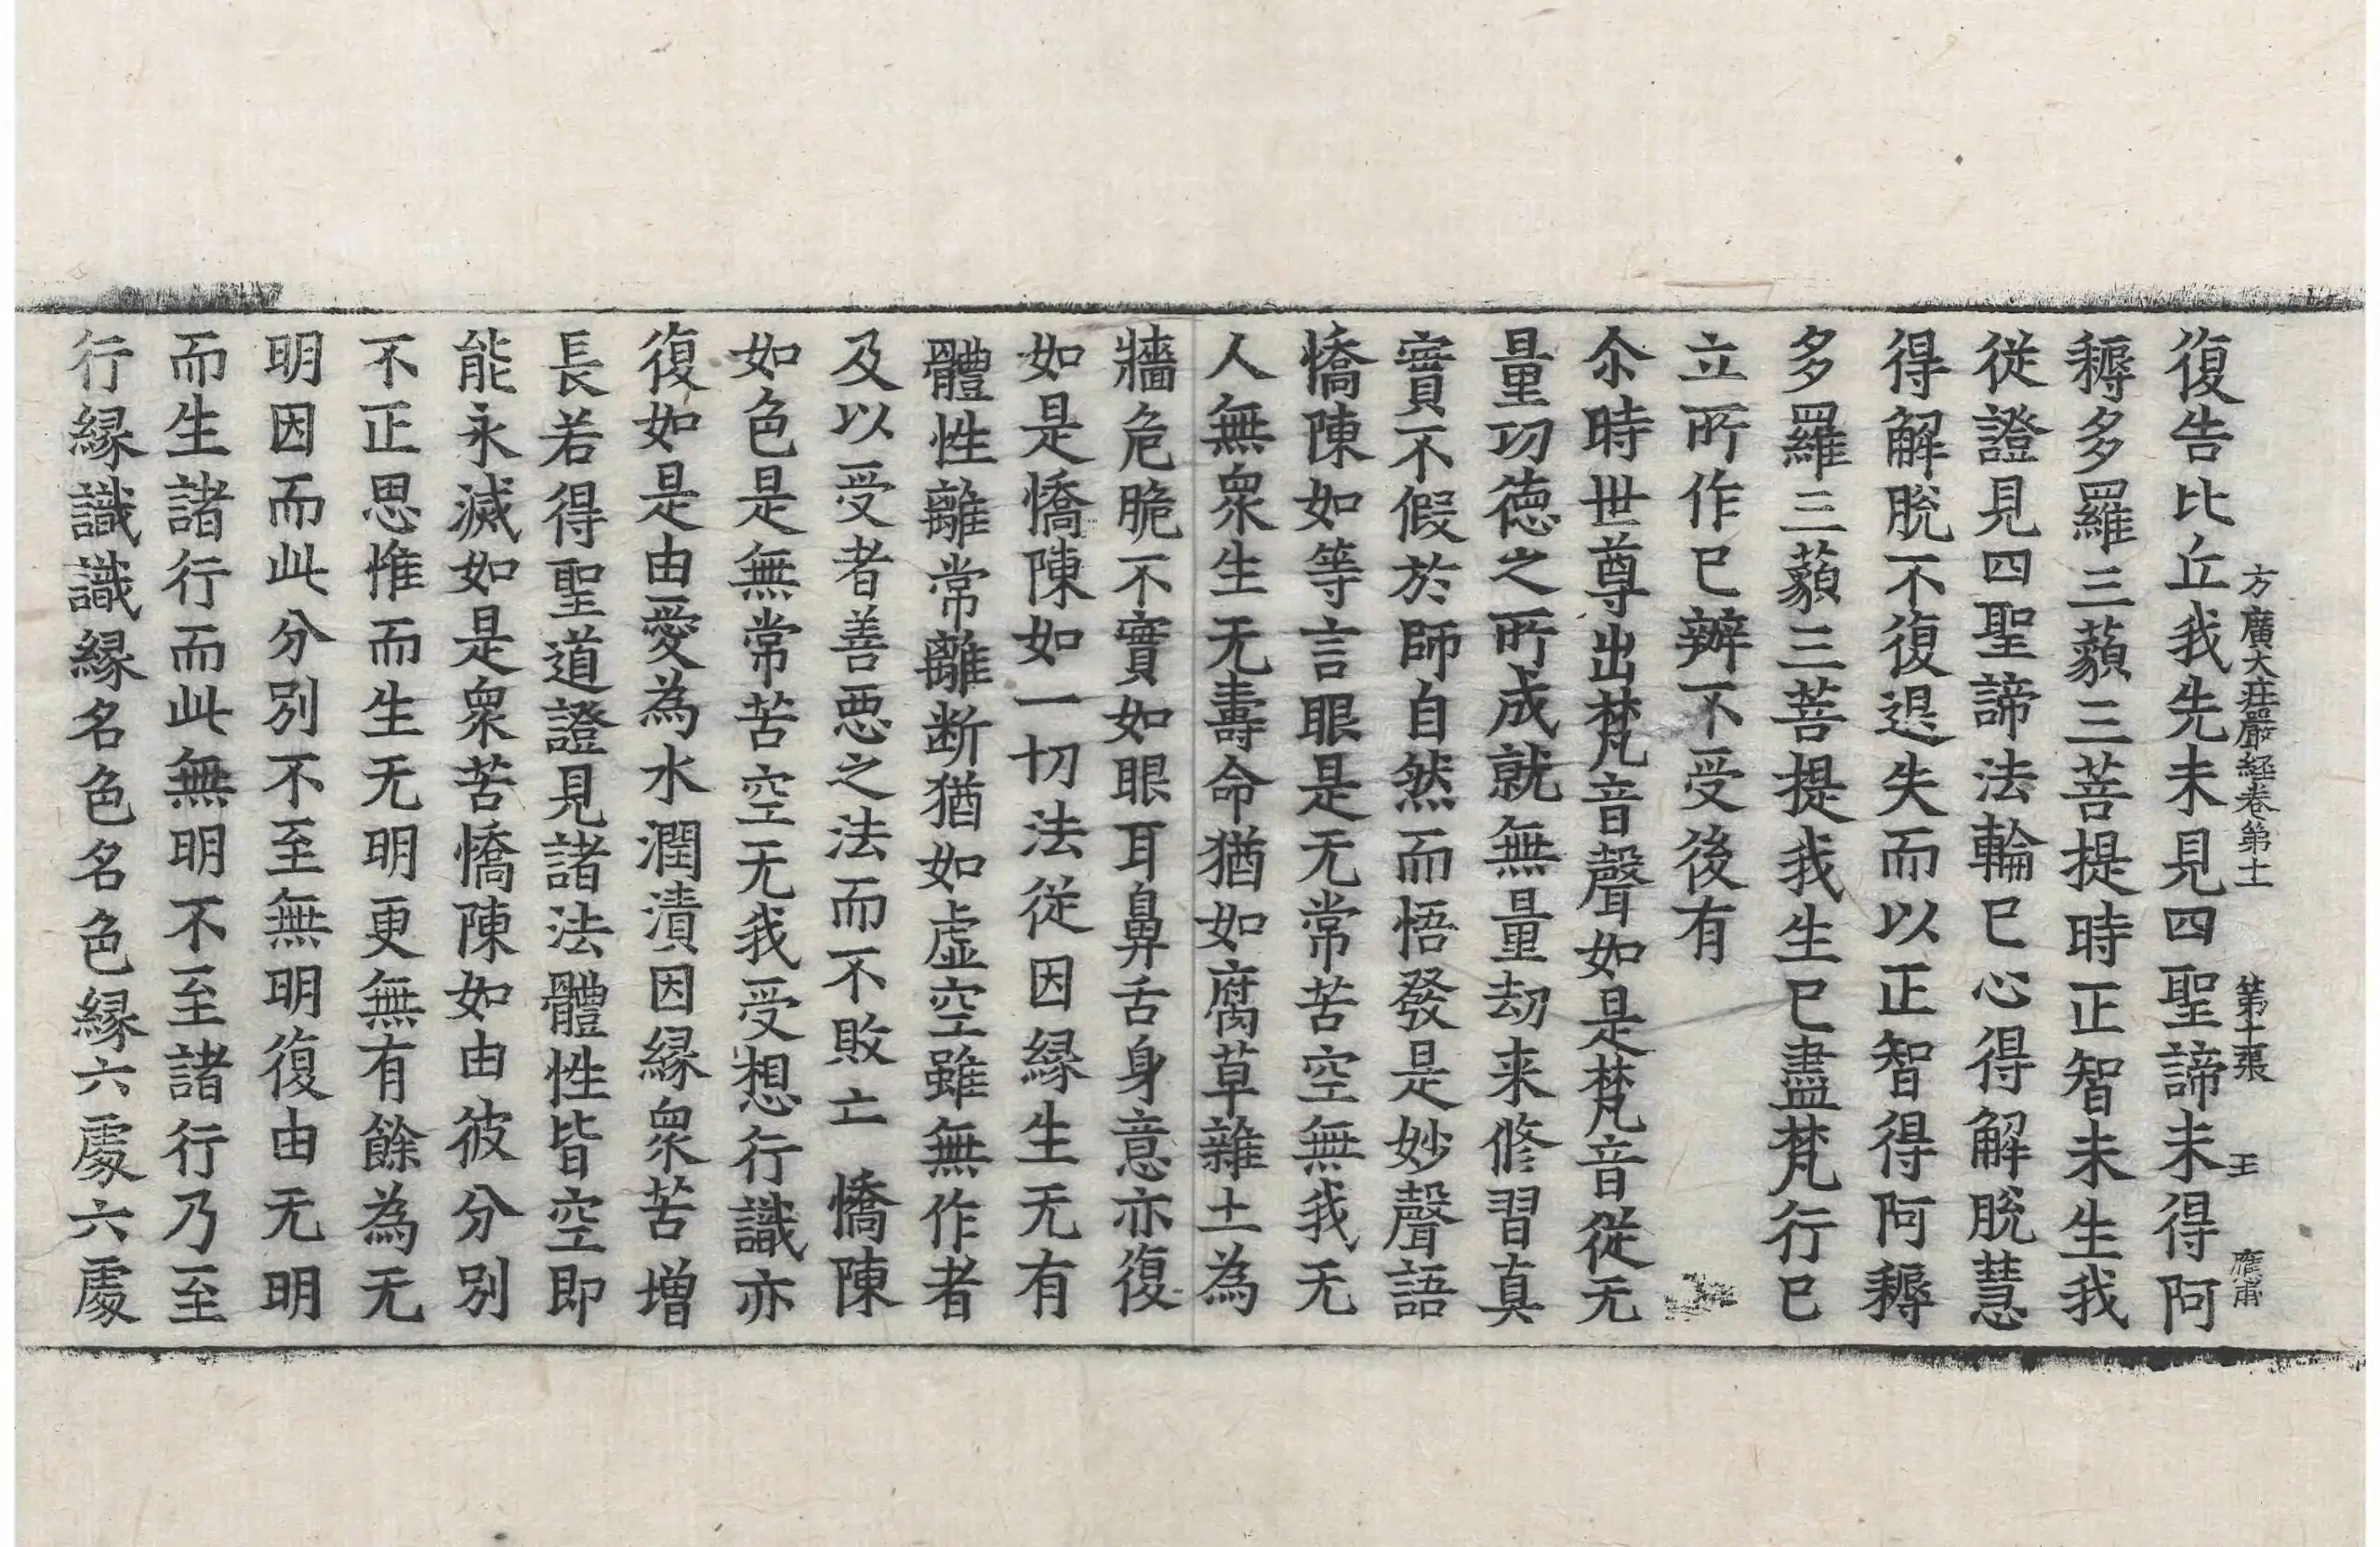 方廣大莊嚴經卷第十一 第十張 王 應甫
復告比丘我先未見四聖諦未得阿
耨多羅三藐三菩提時正智未生我
從證見四聖諦法輪已心得解脫慧
得解脫不復退失而以正智得阿耨
多羅三藐三菩提我生已盡梵行已
立所作已辦不受後有
尒時世尊出梵音聲如是梵音從无
量功德之所成就無量劫来修習真
實不假於師自然而悟發是妙聲語
憍陳如等言眼是无常苦空無我无
人無衆生无壽命猶如腐草雜土為
牆危脆不實如眼耳鼻舌身意亦復
如是憍陳如一切法從因緣生无有
體性離常離断猶如虛空雖無作者
及以受者善惡之法而不敗亡憍陳
如色是無常苦空无我受想行識亦
復如是由愛為水潤漬因緣衆苦增
長若得聖道證見諸法體性皆空即
能永滅如是衆苦憍陳如由彼分別
不正思惟而生无明更無有餘為无
明因而此分別不至無明復由无明
而生諸行而此無明不至諸行乃至
行緣識識緣名色名色緣六處六處